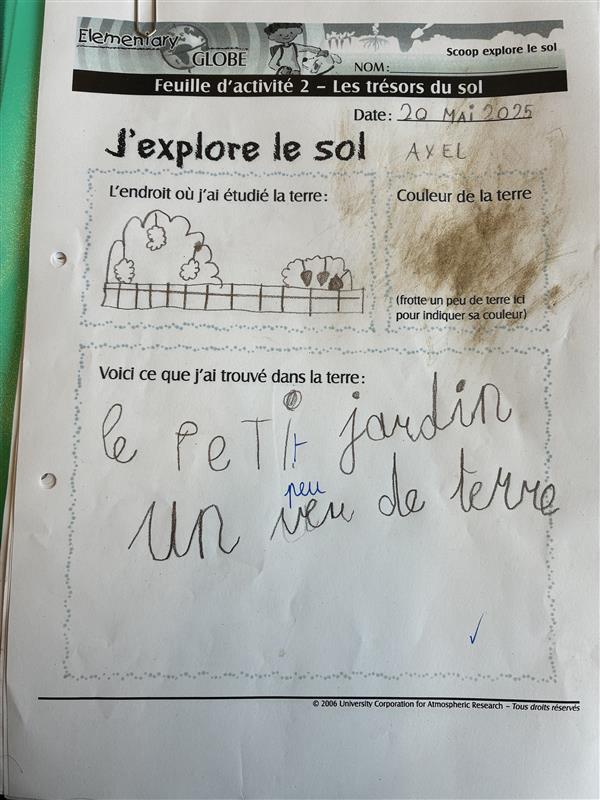 Elementary
GLOBE
Scoop explore le sol
NOM:
Feuille d'activité 2 – Les trésors du sol
Date: 20 MAi 2025
J'explore le sol
AXEL
L'endroit où j'ai étudié la terre:
Couleur de la terre
(frotte un peu de terre ici
pour indiquer sa couleur)
Voici ce que j'ai trouvé dans la terre:
le PeTit jardin
peu
un veu de terre
© 2006 University Corporation for Atmospheric Research – Tous droits réservés